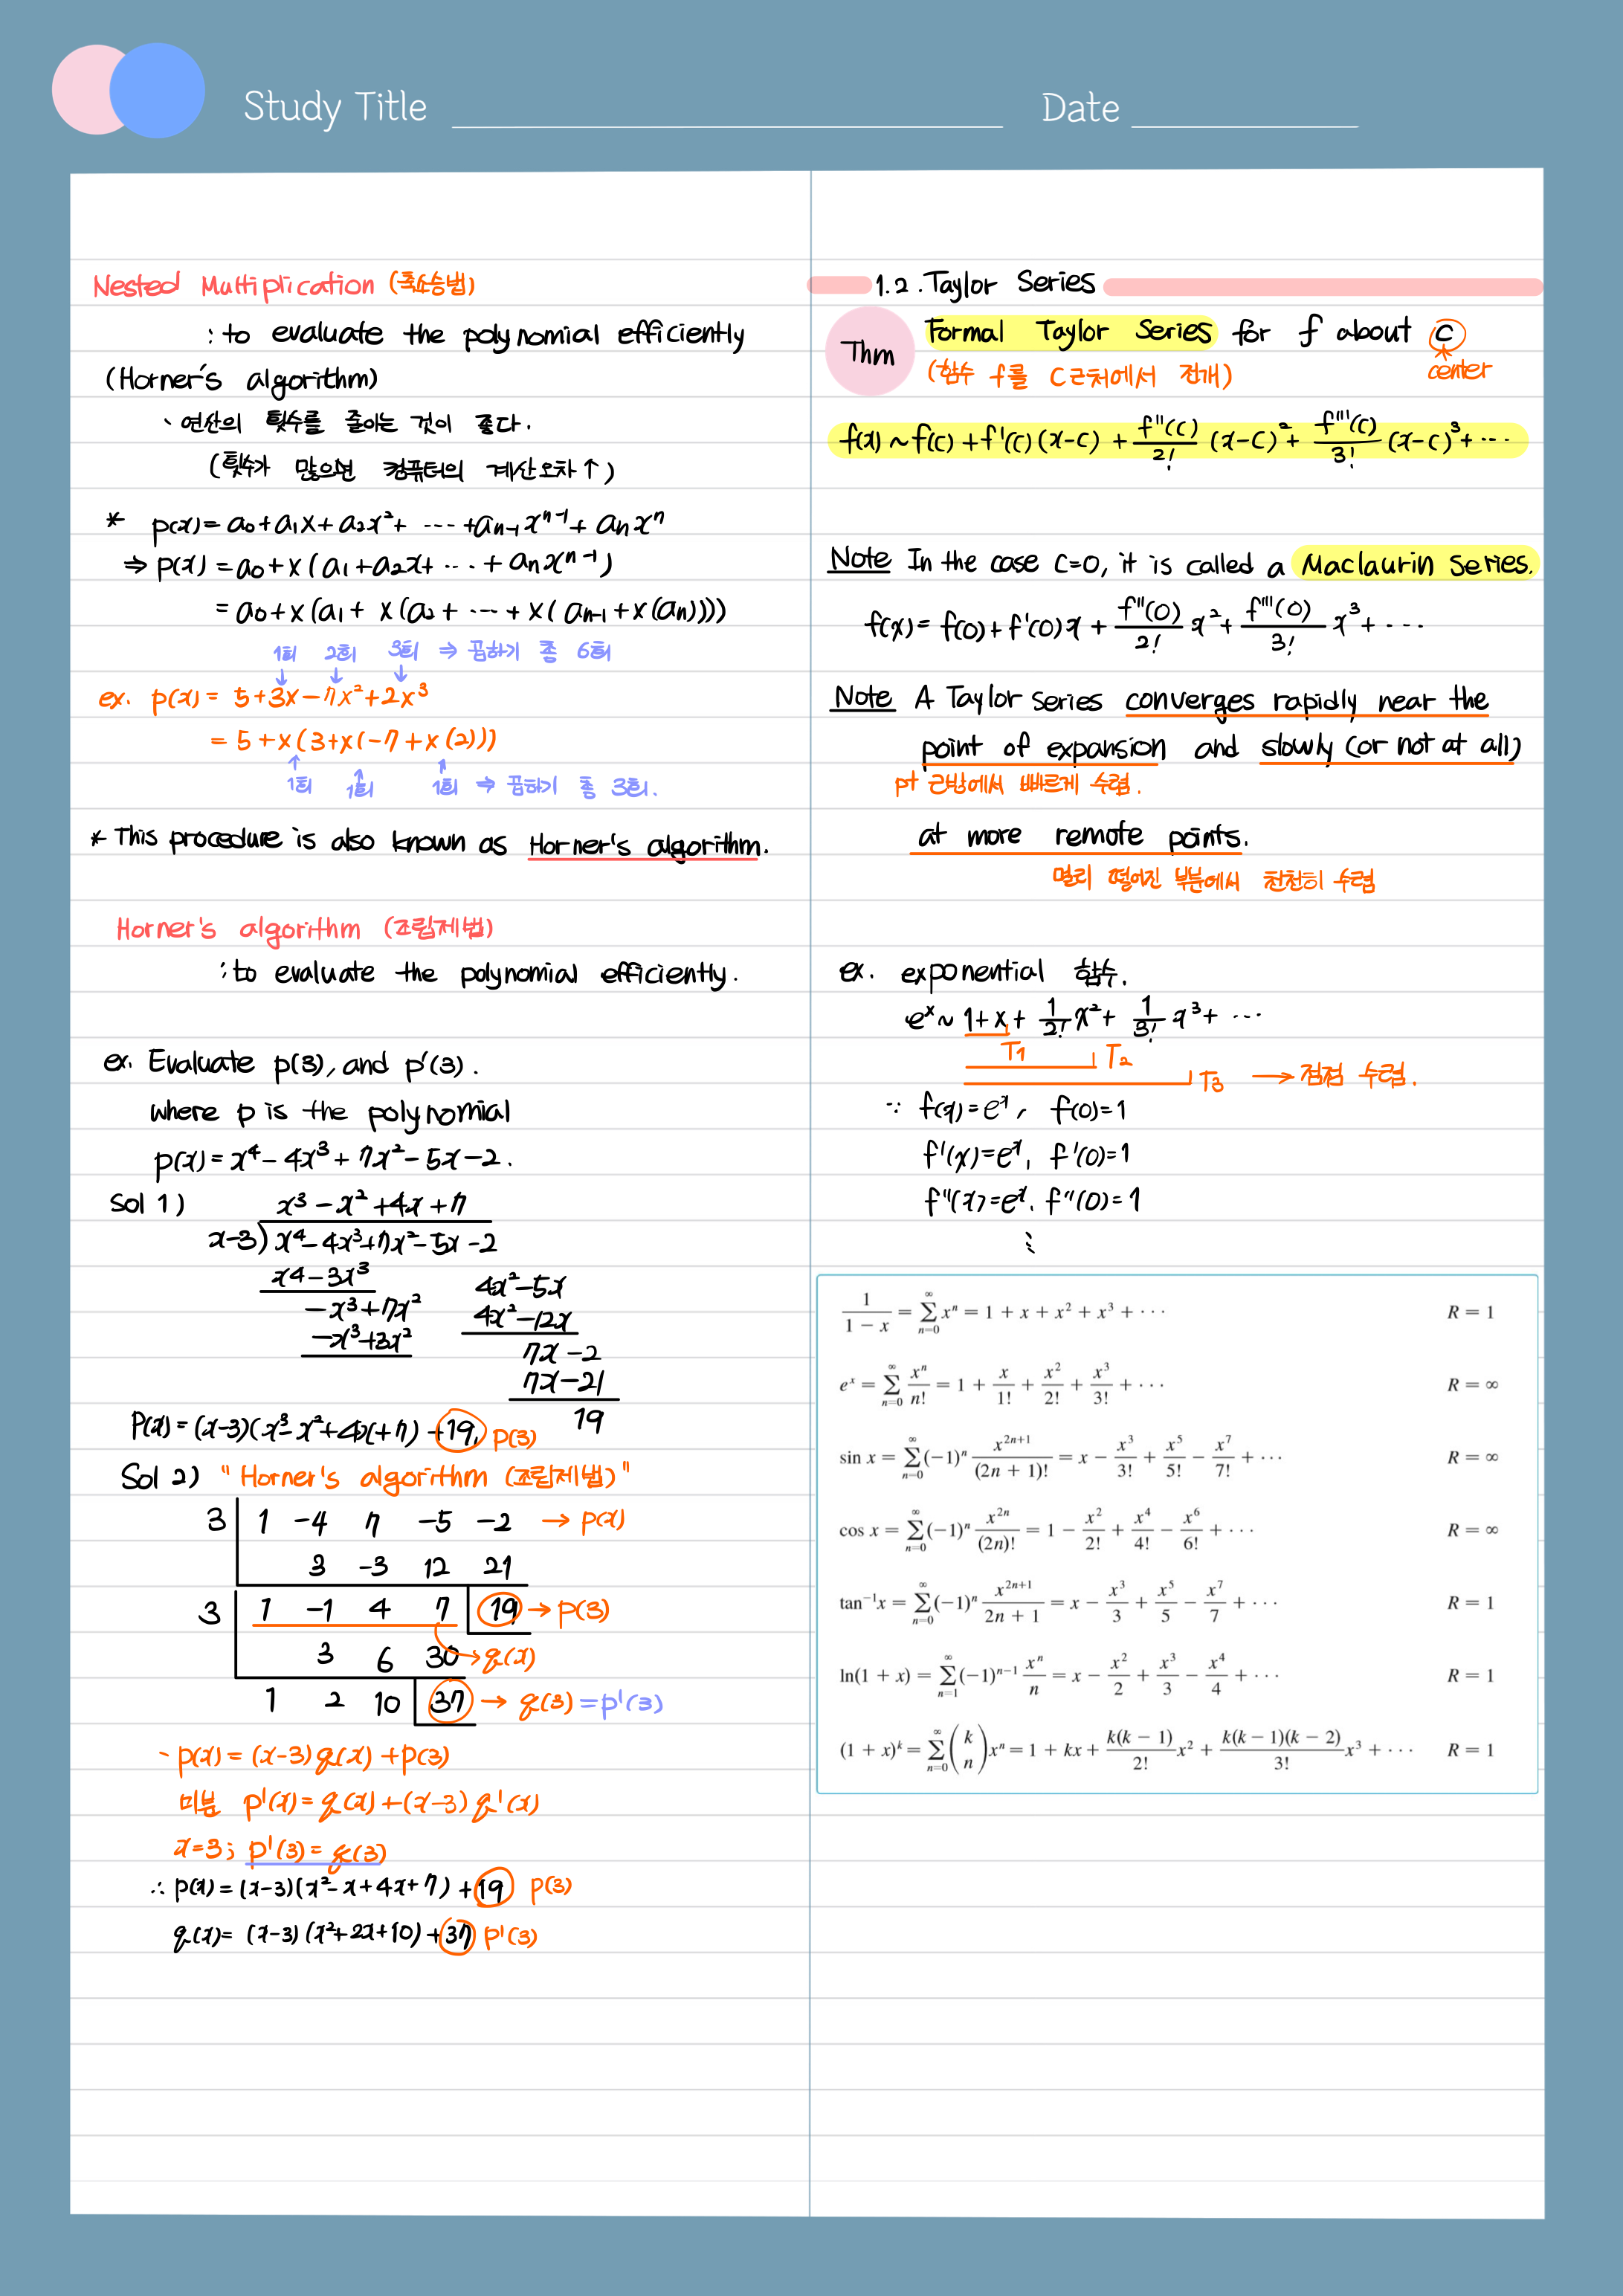 Study Title
Date
Nested Multiplication (축소승법)
: to evaluate the polynomial efficiently
(Horner's algorithm)
· 연산의 횟수를 줄이는 것이 좋다.
(횟수가 많으면 컴퓨터의 계산오차↑)
* p(x) = a₀ + a₁x + a₂x² + ⋯ + aₙ₋₁xⁿ⁻¹ + aₙxⁿ
⇒ p(x) = a₀ + x(a₁ + a₂x + ⋯ + aₙxⁿ⁻¹)
= a₀ + x(a₁ + x(a₂ + ⋯ + x(aₙ₋₁ + x(aₙ))))
1회 2회 3회 ⇒ 곱하기 총 6회
ex. p(x) = 5+3x-7x²+2x³
= 5+x(3+x(-7+x(2)))
1회 1회 1회 ⇒ 곱하기 총 3회.
* This procedure is also known as Horner's algorithm.
Horner's algorithm (조립제법)
: to evaluate the polynomial efficiently.
ex. Evaluate p(3), and p'(3).
where p is the polynomial
p(x) = x⁴-4x³+7x²-5x-2.
Sol 1) x³-x²+4x+7
x-3) x⁴-4x³+7x²-5x-2
x⁴-3x³
-x³+7x²
-x³+3x²
4x²-5x
4x²-12x
7x-2
7x-21
19
P(x) = (x-3)(x³-x²+4x+7)+19, p(3)
Sol 2) "Horner's algorithm (조립제법)"
3 1 -4 7 -5 -2 → p(x)
3 -3 12 21
3 1 -1 4 7 19 → p(3)
3 6 30 → q(x)
1 2 10 37 → q(3) = p'(3)
- p(x) = (x-3)q(x)+p(3)
미분 p'(x) = q(x)+(x-3)q'(x)
x=3; p'(3) = q(3)
∴ p(x) = (x-3)(x²-x+4x+7)+19 p(3)
q(x) = (x-3)(x²+2x+10)+37 p'(3)
1.2. Taylor Series
Thm Formal Taylor Series for f about c
(함수 f를 C근처에서 전개) center
f(x) ~ f(c) + f'(c)(x-c) + f''(c)/2! (x-c)² + f'''(c)/3! (x-c)³ + ⋯
Note In the case c=0, it is called a Maclaurin Series.
f(x) = f(0) + f'(0)x + f''(0)/2! x² + f'''(0)/3! x³ + ⋯
Note A Taylor series converges rapidly near the
point of expansion and slowly (or not at all)
pt 근방에서 빠르게 수렴.
at more remote points.
멀리 떨어진 부분에서 천천히 수렴
ex. exponential 함수.
eˣ ~ 1+x+ 1/2! x² + 1/3! x³ + ⋯
T₁ T₂
T₃ → 점점 수렴.
∵ f(x)=eˣ, f(0)=1
f'(x)=eˣ, f'(0)=1
f''(x)=eˣ, f''(0)=1
⋮
1/(1 − x) = ∑_{n=0}^{∞} xⁿ = 1 + x + x² + x³ + ⋯ R = 1
eˣ = ∑_{n=0}^{∞} xⁿ/n! = 1 + x/1! + x²/2! + x³/3! + ⋯ R = ∞
sin x = ∑_{n=0}^{∞} (−1)ⁿ x²ⁿ⁺¹/(2n + 1)! = x − x³/3! + x⁵/5! − x⁷/7! + ⋯ R = ∞
cos x = ∑_{n=0}^{∞} (−1)ⁿ x²ⁿ/(2n)! = 1 − x²/2! + x⁴/4! − x⁶/6! + ⋯ R = ∞
tan⁻¹x = ∑_{n=0}^{∞} (−1)ⁿ x²ⁿ⁺¹/(2n + 1) = x − x³/3 + x⁵/5 − x⁷/7 + ⋯ R = 1
ln(1 + x) = ∑_{n=1}^{∞} (−1)ⁿ⁻¹ xⁿ/n = x − x²/2 + x³/3 − x⁴/4 + ⋯ R = 1
(1 + x)ᵏ = ∑_{n=0}^{∞} (k n) xⁿ = 1 + kx + k(k − 1)/2! x² + k(k − 1)(k − 2)/3! x³ + ⋯ R = 1